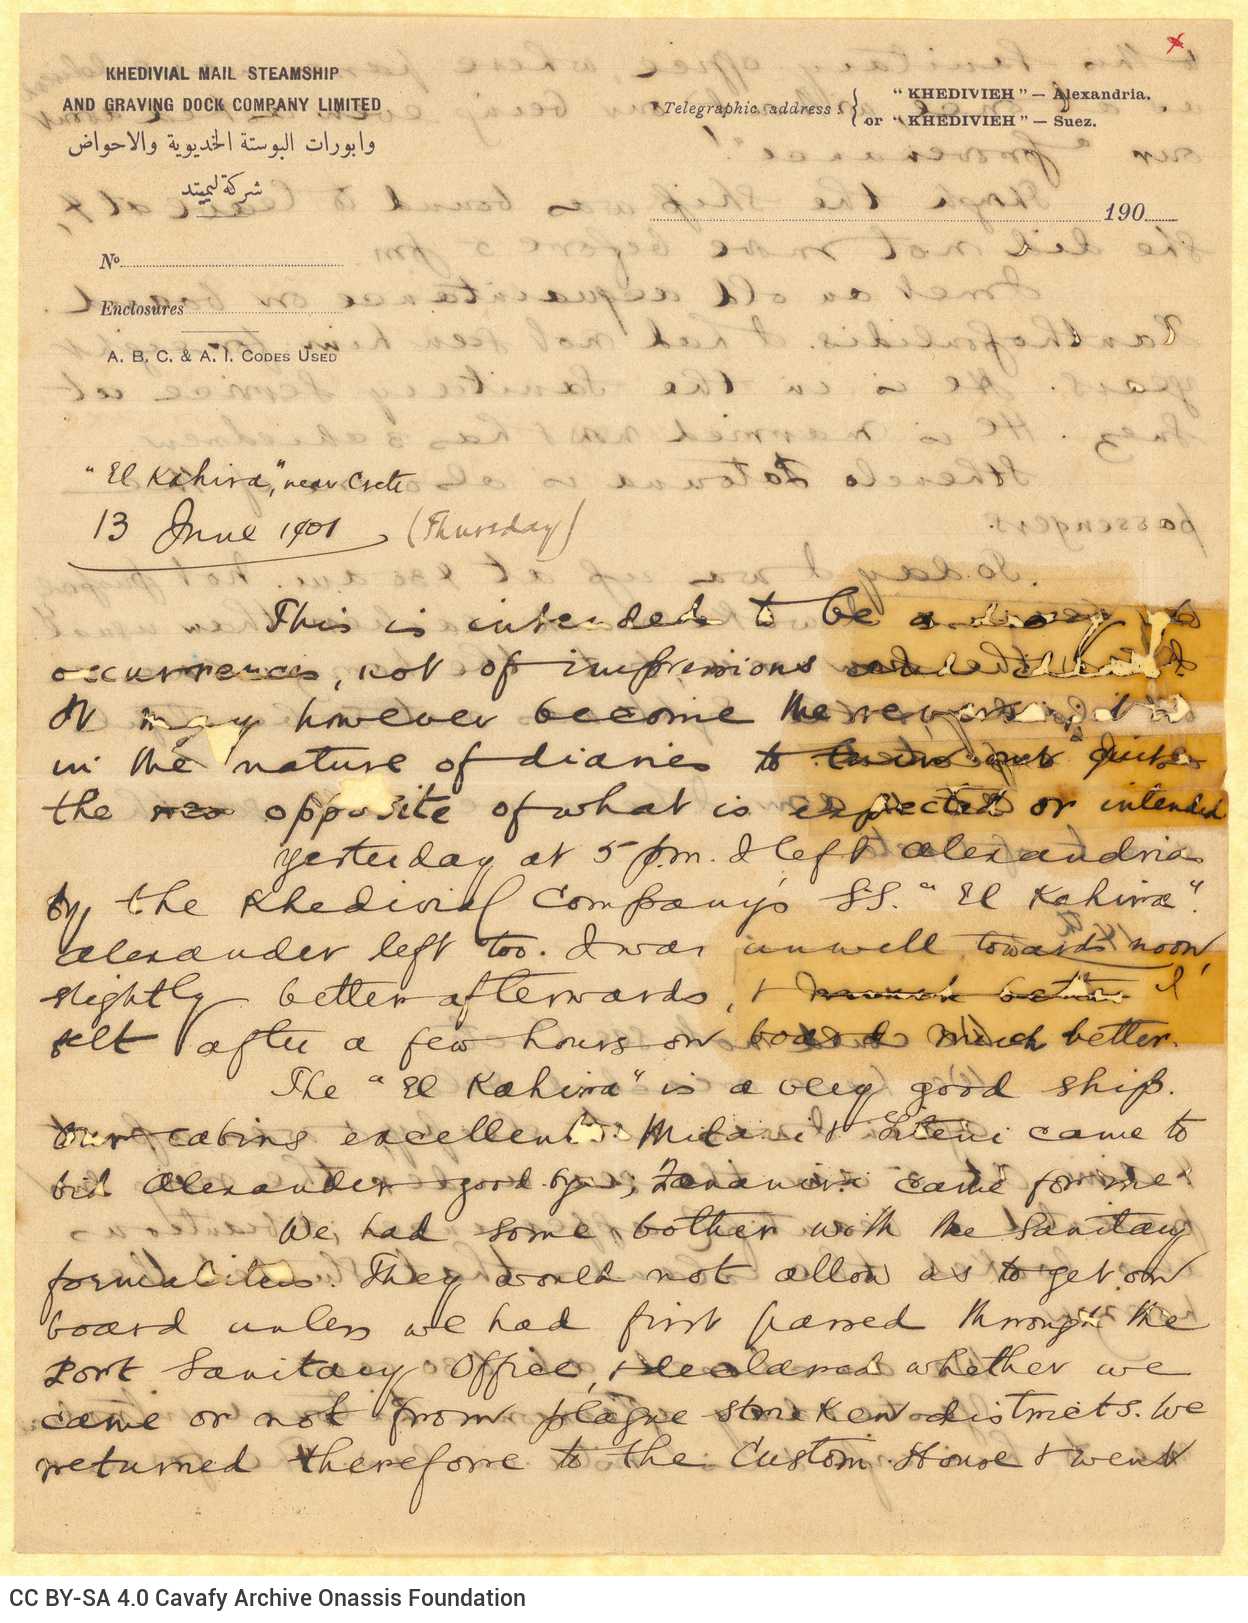 KHEDIVIAL MAIL STEAMSHIP
AND GRAVING DOCK COMPANY LIMITED
وابورات البوستة الخديوية والاحواض
شركة ليميتد
Telegraphic address : { "KHEDIVIEH" — Alexandria.
or "KHEDIVIEH" — Suez.
190
No
Enclosures
A. B. C. & A. I. CODES USED
"El Kahira", near Crete
13 June 1901 (Thursday)
This is intended to be a diary of
occurrences, not of impressions and ideas.
It may however become the reverse, it is
in the nature of diaries to turn out quite
the opposite of what is expected or intended
Yesterday at 5 p.m. I left Alexandria
by the Khedivial Company's SS. "El Kahira".
Alexander left too. I was unwell towards noon,
slightly better afterwards, & much better I
felt after a few hours on board much better.
The "El Kahira" is a very good ship.
Our cabins excellent. Mitani & came to
bid Alexander good bye; came for me.
We had some bother with the Sanitary
formalities. They would not allow us to get on
board unless we had first passed through the
Port Sanitary Office, & declared whether we
came or not from plague stricken districts. We
returned therefore to the Custom House & went
CC BY-SA 4.0 Cavafy Archive Onassis Foundation